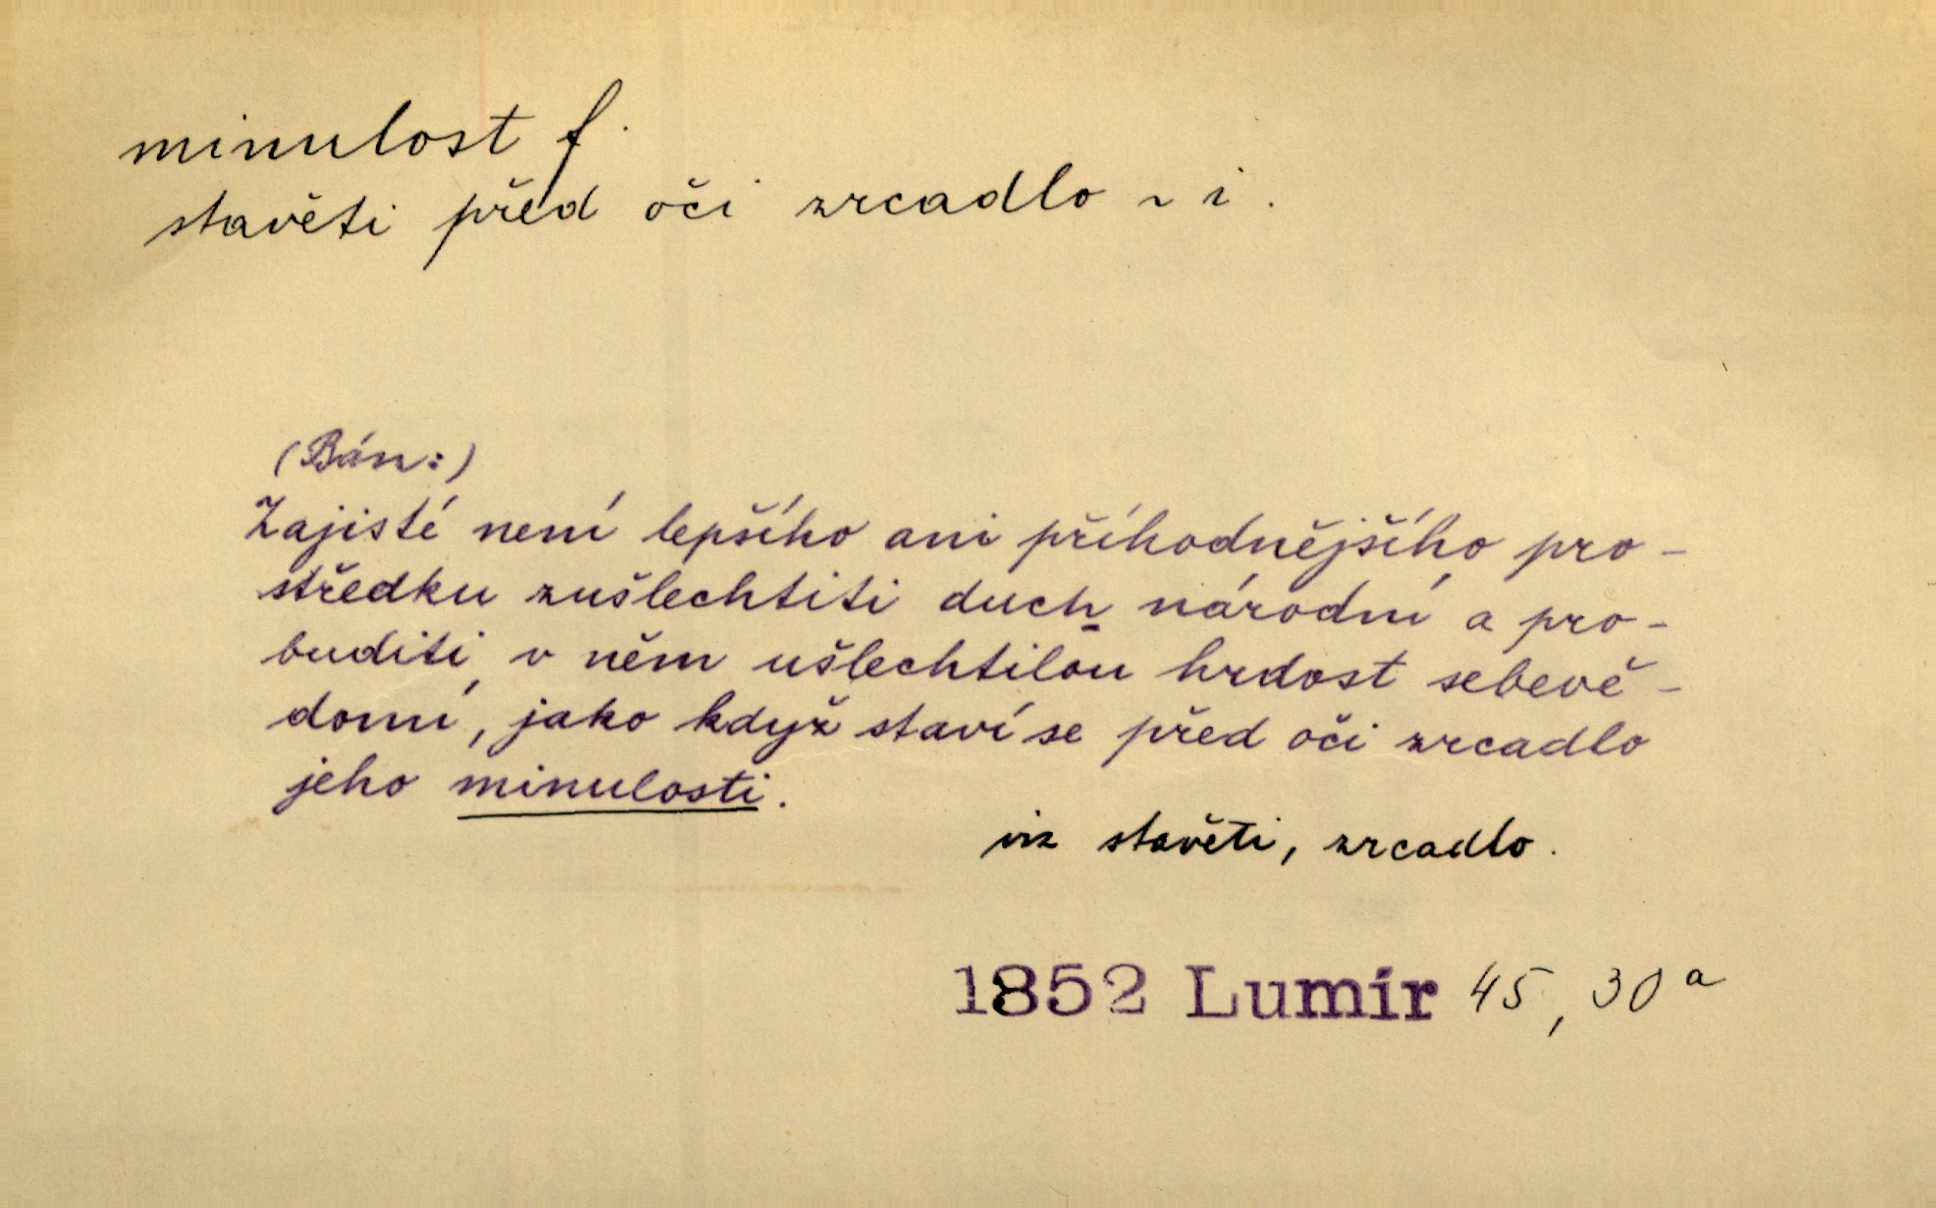 minulost f.
stavěti před oči zrcadlo ~ i.
(Bán:)
Zajisté není lepšího ani příhodnějšího pro-
středku zušlechtiti duch národní a pro-
buditi v něm ušlechtilou hrdost sebevě-
domí, jako když staví se před oči zrcadlo
jeho minulosti.
viz stavěti, zrcadlo.
1852 Lumír 45, 30a